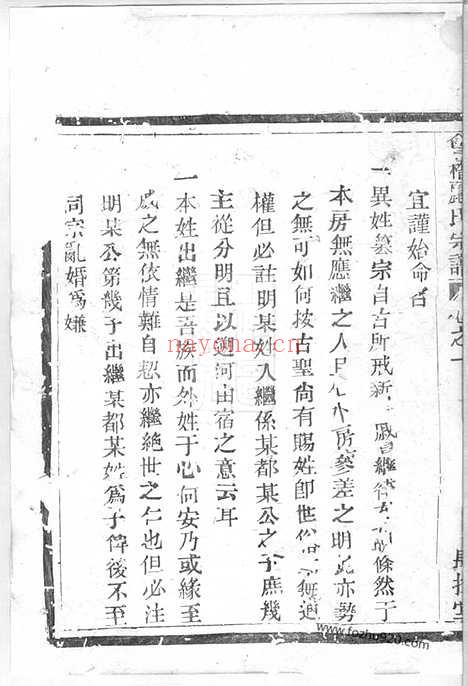 宜謹始命名
一異姓慕宗自古所戒 繼律 條然于
本房無應繼之人 房參差之明 亦勢
之無可如何按古聖尚有賜姓卽世俗 無通
權但必註明某姓入繼係某都某公之子庶幾
主從分明且以遡河由宿之意云耳
一本姓出繼是吾族而外姓于心何安乃或緣至
戚之無依情難自恝亦繼絕世之仁也但必注
明某公第幾子出繼某都某姓爲子俾後不至
同宗亂婚爲嫌
nayona.cn
www.fozhu920.com